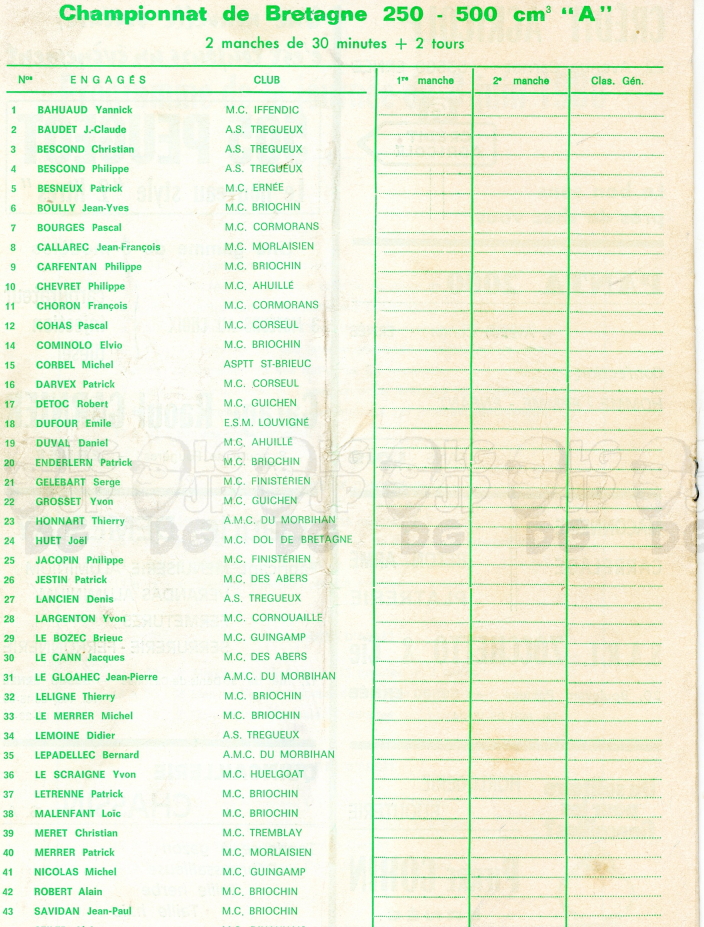 Championnat de Bretagne 250 - 500 cm³ "A"
2 manches de 30 minutes + 2 tours
Nos ENGAGÉS CLUB 1re manche 2e manche Clas. Gén.
1 BAHUAUD Yannick M.C. IFFENDIC
2 BAUDET J.-Claude A.S. TREGUEUX
3 BESCOND Christian A.S. TREGUEUX
4 BESCOND Philippe A.S. TREGUEUX
5 BESNEUX Patrick M.C. ERNÉE
6 BOULLY Jean-Yves M.C. BRIOCHIN
7 BOURGES Pascal M.C. CORMORANS
8 CALLAREC Jean-François M.C. MORLAISIEN
9 CARFENTAN Philippe M.C. BRIOCHIN
10 CHEVRET Philippe M.C. AHUILLÉ
11 CHORON François M.C. CORMORANS
12 COHAS Pascal M.C. CORSEUL
14 COMINOLO Elvio M.C. BRIOCHIN
15 CORBEL Michel ASPTT ST-BRIEUC
16 DARVEX Patrick M.C. CORSEUL
17 DETOC Robert M.C. GUICHEN
18 DUFOUR Emile E.S.M. LOUVIGNÉ
19 DUVAL Daniel M.C. AHUILLÉ
20 ENDERLERN Patrick M.C. BRIOCHIN
21 GELEBART Serge M.C. FINISTÉRIEN
22 GROSSET Yvon M.C. GUICHEN
23 HONNART Thierry A.M.C. DU MORBIHAN
24 HUET Joël M.C. DOL DE BRETAGNE
25 JACOPIN Philippe M.C. FINISTÉRIEN
26 JESTIN Patrick M.C. DES ABERS
27 LANCIEN Denis A.S. TREGUEUX
28 LARGENTON Yvon M.C. CORNOUAILLE
29 LE BOZEC Brieuc M.C. GUINGAMP
30 LE CANN Jacques M.C. DES ABERS
31 LE GLOAHEC Jean-Pierre A.M.C. DU MORBIHAN
32 LELIGNE Thierry M.C. BRIOCHIN
33 LE MERRER Michel M.C. BRIOCHIN
34 LEMOINE Didier A.S. TREGUEUX
35 LEPADELLEC Bernard A.M.C. DU MORBIHAN
36 LE SCRAIGNE Yvon M.C. HUELGOAT
37 LETRENNE Patrick M.C. BRIOCHIN
38 MALENFANT Loïc M.C. BRIOCHIN
39 MERET Christian M.C. TREMBLAY
40 MERRER Patrick M.C. MORLAISIEN
41 NICOLAS Michel M.C. GUINGAMP
42 ROBERT Alain M.C. BRIOCHIN
43 SAVIDAN Jean-Paul M.C. BRIOCHIN